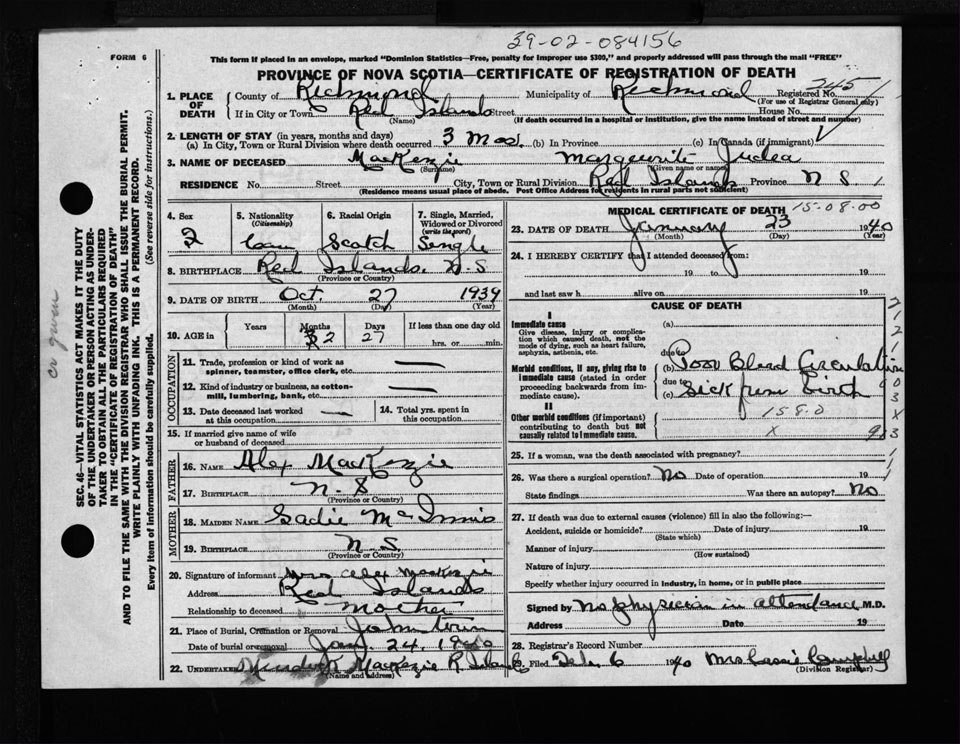 39-02-084156
FORM 6
This form if placed in an envelope, marked "Dominion Statistics—Free, penalty for improper use $300," and properly addressed will pass through the mail "FREE"
PROVINCE OF NOVA SCOTIA—CERTIFICATE OF REGISTRATION OF DEATH
245
1. PLACE OF DEATH County of Richmond Municipality of Richmond Registered No.
(For use of Registrar General only)
If in City or Town Red Islands Street House No.
(Name) (If death occurred in a hospital or institution, give the name instead of street and number)
2. LENGTH OF STAY (in years, months and days)
(a) In City, Town or Rural Division where death occurred 3 Mos. (b) In Province (c) In Canada (if immigrant)
3. NAME OF DECEASED MacKenzie Marguerite Judea
(Surname) (Given name or names)
RESIDENCE No. Street City, Town or Rural Division Red Islands Province N S
(Residence means usual place of abode. Post Office Address for residents in rural parts not sufficient)
4. Sex 5. Nationality (Citizenship) 6. Racial Origin 7. Single, Married, Widowed or Divorced (write the word)
2 Can Scotch Single
8. BIRTHPLACE Red Islands. N.S
(Province or Country)
9. DATE OF BIRTH Oct. 27 1939
(Month) (Day) (Year)
10. AGE in Years Months Days If less than one day old
2 27 hrs. or min.
OCCUPATION
11. Trade, profession or kind of work as spinner, teamster, office clerk, etc. —
12. Kind of industry or business, as cotton-mill, lumbering, bank, etc. —
13. Date deceased last worked at this occupation — 14. Total yrs. spent in this occupation
15. If married give name of wife or husband of deceased
FATHER
16. NAME Alex MacKenzie
17. BIRTHPLACE N. S
(Province or Country)
MOTHER
18. MAIDEN NAME Sadie McInnis
19. BIRTHPLACE N.S
(Province or Country)
20. Signature of informant Mrs Alex MacKenzie
Address Red Islands
Relationship to deceased Mother
21. Place of Burial, Cremation or Removal Johnstown
Date of burial or removal Jan. 24. 1940
22. Undertaker MacKenzie R. Islands
(Name and address)
MEDICAL CERTIFICATE OF DEATH 15-08-00
23. DATE OF DEATH January 23 1940
(Month) (Day) (Year)
24. I HEREBY CERTIFY that I attended deceased from:
19 to 19
and last saw h alive on 19
CAUSE OF DEATH
I
Immediate cause (a)
Give disease, injury or complication which caused death, not the mode of dying, such as heart failure, asphyxia, asthenia, etc.
due to
Morbid conditions, if any, giving rise to immediate cause (stated in order proceeding backwards from immediate cause). (b) Poor Blood Circulation
due to
(c) Sick from birth
II
Other morbid conditions (if important) contributing to death but not causally related to immediate cause. 158.0
X
25. If a woman, was the death associated with pregnancy?
26. Was there a surgical operation? No Date of operation 19
State findings Was there an autopsy? No
27. If death was due to external causes (violence) fill in also the following:—
Accident, suicide or homicide? Date of injury 19
(State which)
Manner of injury
(How sustained)
Nature of injury
Specify whether injury occurred in industry, in home, or in public place
Signed by No physician in attendance M.D.
Address Date 19
28. Registrar's Record Number
29. Filed Feb. 6 1940 Mrs Cassie Campbell
(Division Registrar)
SEC. 46—VITAL STATISTICS ACT MAKES IT THE DUTY
OF THE UNDERTAKER OR PERSON ACTING AS UNDER-
TAKER TO OBTAIN ALL THE PARTICULARS REQUIRED
IN THE "CERTIFICATE OF REGISTRATION OF DEATH"
AND TO FILE THE SAME WITH THE DIVISION REGISTRAR WHO SHALL ISSUE THE BURIAL PERMIT.
WRITE PLAINLY WITH UNFADING INK. THIS IS A PERMANENT RECORD.
Every item of information should be carefully supplied. (See reverse side for instructions.)
as given